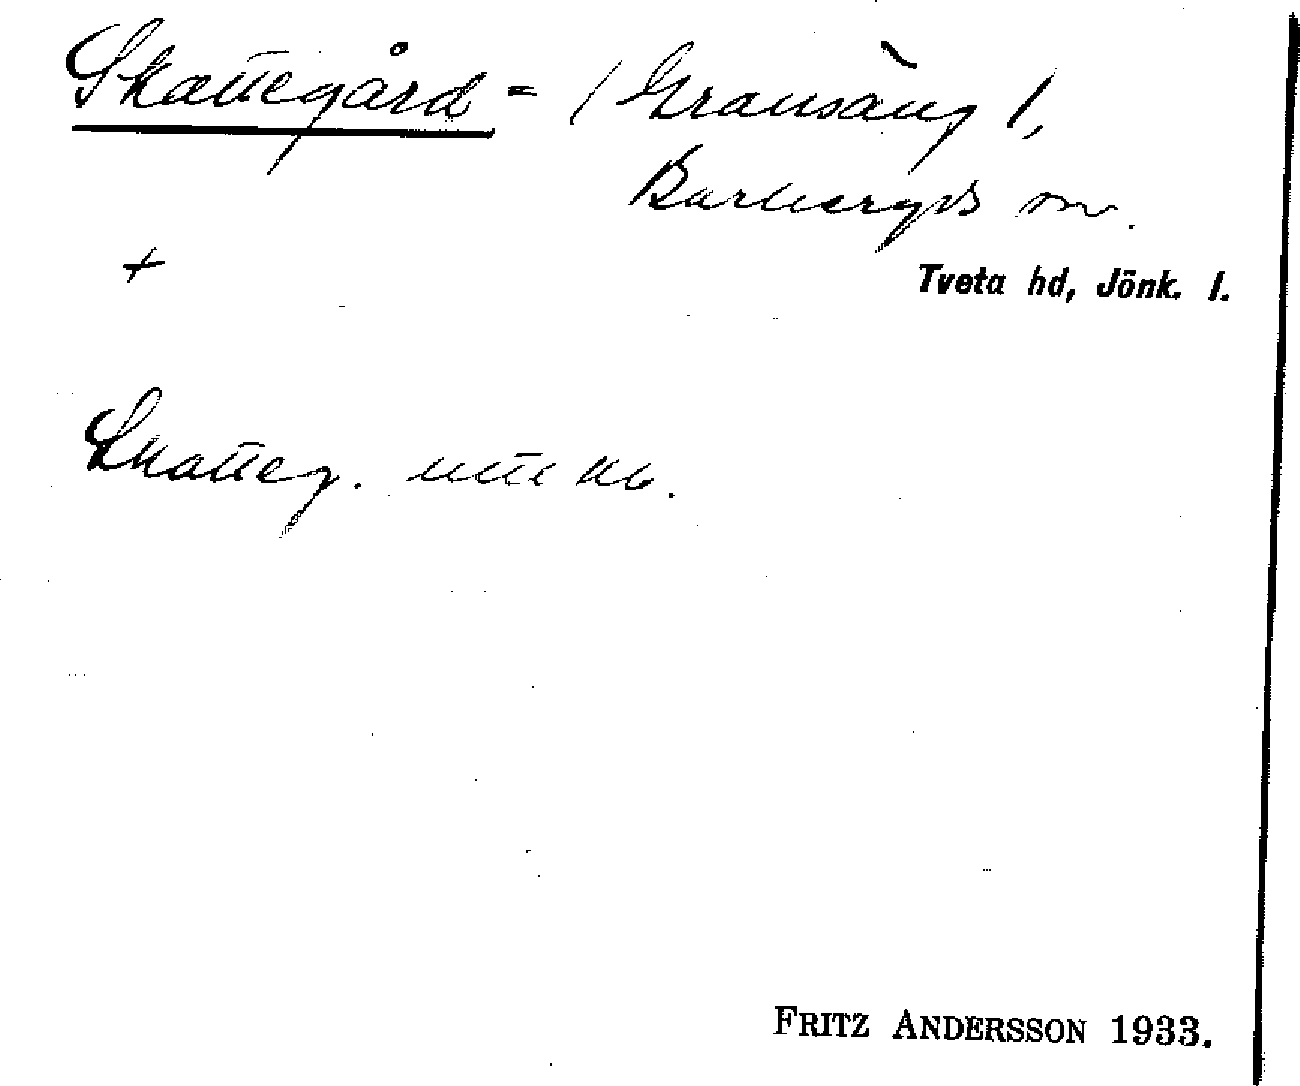 Skattegård = (Gransäng),
Barkeryds sn.
+
Tveta hd, Jönk. l.
Skatteg.
FRITZ ANDERSSON 1933.